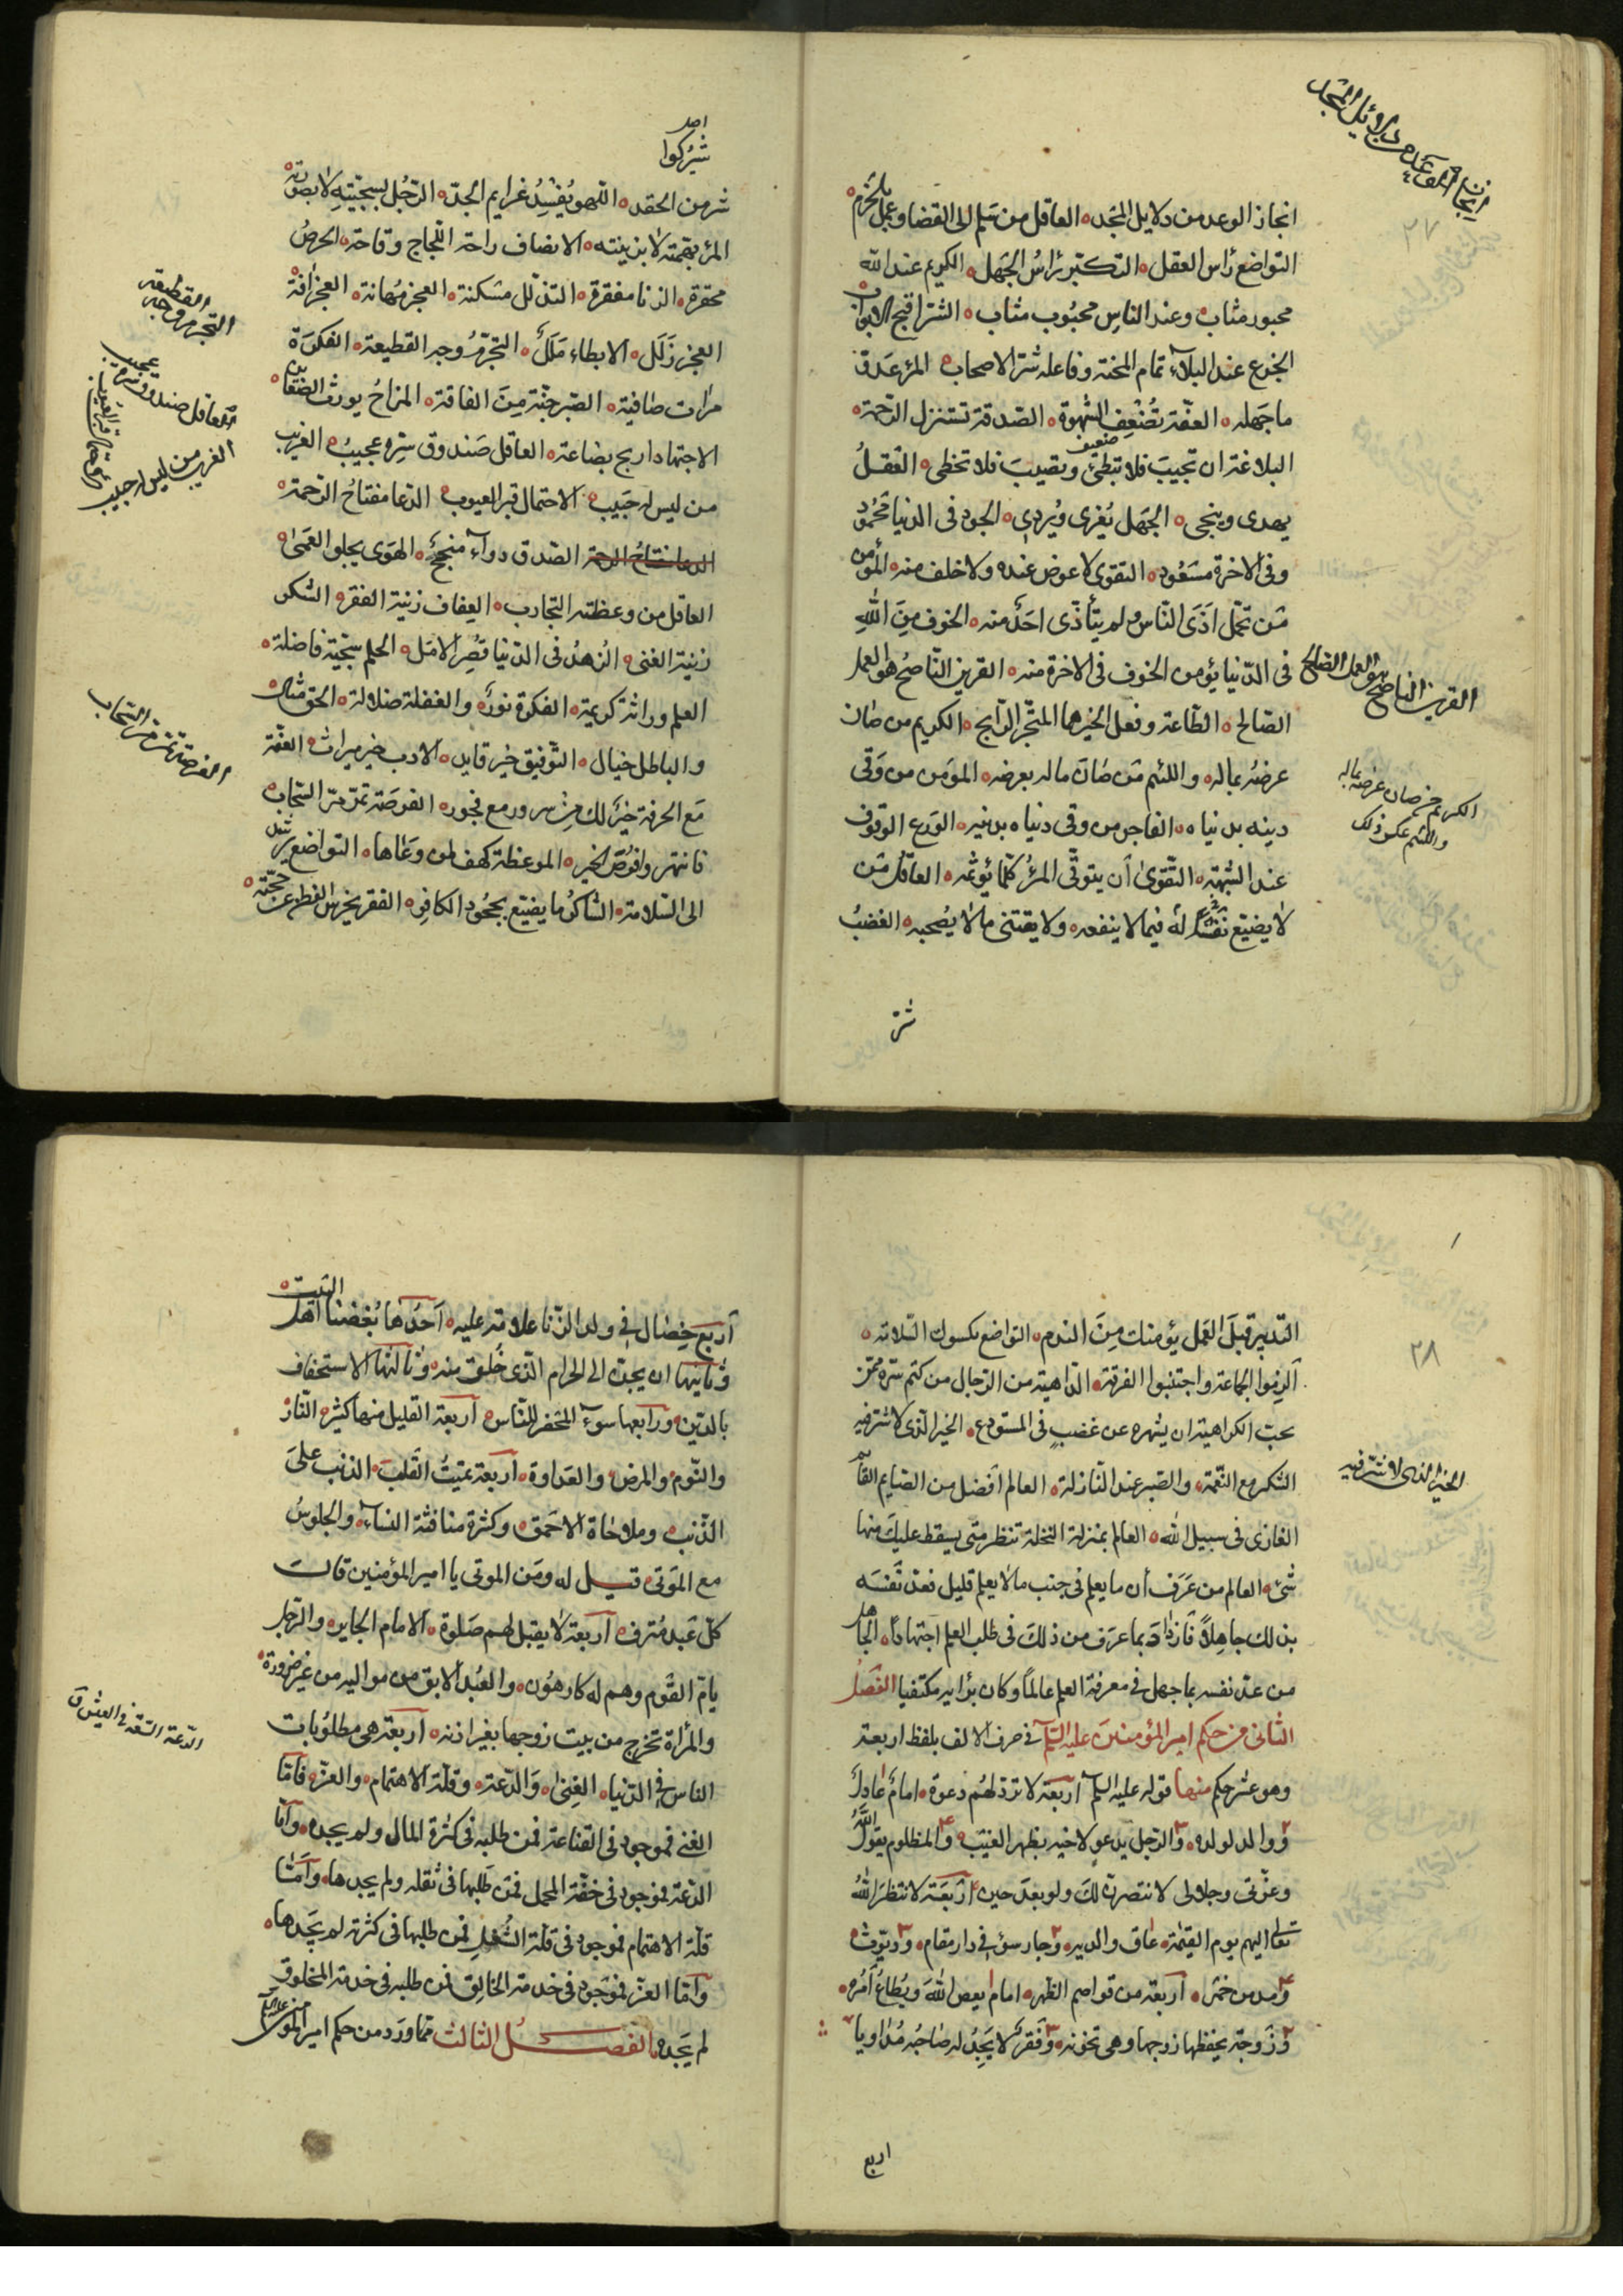 انجاز الوعد من دلايل المجد العاقل من سلم الى القضا وعمل بالحزم
التواضع رأس العقل التكبر رأس الجهل الكريم عند الله
محبور مثاب وعند الناس محبوب مثاب الشر اقبح الابواب
الجزع عند البلآء تمام المحنة وفاعله شر الاصحاب المرء عدو
ما جهله العفة تضعف الشهوة الصدقة تستنزل الرحمة
البلاغة ان تجيب فلا تبطئ وتصيب فلا تخطى العقل
يهدى وينجى الجهل يغوى ويردى الجود فى الدنيا محمود
وفى الاخرة مسعود التقوى لا عوض عنه ولا خلف منه المؤمن
من تحمل اذى الناس ولم يتأذى احد منه الخوف من الله
فى الدنيا يؤمن الخوف فى الاخرة منه القرين الناصح هو العمل
الصالح الطاعة وفعل الخير هما المتجر الرابح الكريم من صان
عرضه بماله واللئيم من صان ماله بعرضه المؤمن من وقى
دينه بدنياه الفاجر من وقى دنياه بدينه الورع الوقوف
عند الشبهة التقوى أن يتوقى المرء كلما يؤثمه العاقل من
لا يضيع نفسا له فيما لا ينفعه ولا يقتنى ما لا يصحبه الغضب
شر
انجاز الوعد من دلايل المجد
٢٧
القرين الناصح هو العمل الصالح
الكريم من صان عرضه بماله
واللئيم عكس ذلك
شر من الحقد اللهو يفسد عزايم الجد الرجل بسجيته لا بصورته
المرء بهمته لا بزينته الانصاف راحة اللجاج وقاحة الحرص
محقرة الزنا مفقرة التذلل مسكنة العجز مهانة العجز افة
العجز زلل الابطاء ملل التجرم وجه القطيعة الفكرة
مرات صافية الصبر جنة من الفاقة المزاح يورث الضغاين
الاجتهاد اربح بضاعة العاقل صندوق سره عجيب الغريب
من ليس له حبيب الاحتمال قبر العيوب الدعا مفتاح الرحمة
الدعا مفتاح الرحمة الصدق دوآء منجح الهوى يجلو العمى
العاقل من وعظته التجارب العفاف زينة الفقر الشكر
زينة الغنى الزهد فى الدنيا قصر الامل الحلم سجية فاضلة
العلم وراثة كريمة الفكرة نور والغفلة ضلالة الحق مثال
والباطل خيال التوفيق خير قايد الادب خير ميراث العفة
مع الحرفة خير لك من سرور مع فجور الفرصة تمر مر السحاب
فانتهزوا فرص الخير الموعظة كهف لمن وعاها التواضع يرشد
الى السلامة الشاكر ما يضيع بجحود الكافر الفقر يخرس الفطن عن حجته
التجرم وجه القطيعة
العاقل صندوق سره عجيب
الغريب من ليس له حبيب
الفرصة تمر مر السحاب
التدبير قبل العمل يؤمنك من الندم التواضع يكسوك السلامة
الزموا الجماعة واجتنبوا الفرقة الداهية من الرجال من كتم سره ممن
يحب الكراهية ان يشهره عن غضب فى المستودع الخير الذى لا شر فيه
الشكر مع النعمة والصبر عند النازلة العالم أفضل من الصايم القايم
الغازى فى سبيل الله العالم بمنزلة النخلة تنظر متى يسقط عليك منها
شئ العالم من عرف أن ما يعلم فى جنب ما لا يعلم قليل فعد نفسه
بذلك جاهلا فازداد بما عرف من ذلك فى طلب العلم اجتهادا الجاهل
من عد نفسه بما جهل فى معرفة العلم عالما وكان برأيه مكتفيا الفصل
الثانى من حكم امير المؤمنين عليه السلام فى حرف الالف بلفظ اربعة
وهو عشر حكم منها قوله عليه السلم أربعة لا ترد لهم دعوة امام عادل
٢ ووالد لولده ٣ والرجل يدعو لاخيه بظهر الغيب ٤ والمظلوم يقول الله
وعزتى وجلالى لانتصرن لك ولو بعد حين أربعة لا ينظر الله
تعالى اليهم يوم القيمة عاق والديه ٢ وجار سوء فى دار مقام ٣ وديوث
٤ ومدمن خمر أربعة من قواصم الظهر امام يعصى الله ويطاع أمره
٢ وزوجة يحفظها زوجها وهى تخونه ٣ وفقر لا يجد له صاحبه مداويا
اربع
٢٨
الخير الذى لا شر فيه
أربع خصال فى ولد الزنا علامة عليه أحدها بغضنا أهل البيت
وثانيها ان يحن الى الحرام الذى خلق منه وثالثها الاستخفاف
بالدين ورابعها سوء المحضر للناس أربعة القليل منها كثير النار
والنوم والمرض والعداوة أربعة تميت القلب الذنب على
الذنب وملاحاة الاحمق وكثرة منافثة النساء والجلوس
مع الموتى قيل له ومن الموتى يا امير المؤمنين قال
كل عبد مترف أربعة لا يقبل لهم صلوة الامام الجاير والرجل
يام القوم وهم له كارهون والعبد الابق من مواليه من غير ضرورة
والمرأة تخرج من بيت زوجها بغير اذنه أربعة هى مطلوبات
الناس فى الدنيا الغنى والدعة وقلة الاهتمام والعز فاما
الغنى فموجود فى القناعة فمن طلبه فى كثرة المال ولم يجده وأما
الدعة فموجود فى خفة المحمل فمن طلبها فى ثقله ولم يجدها وأما
قلة الاهتمام فموجود فى قلة الشغل فمن طلبها فى كثرته لم يجدها
وأما العز فموجود فى خدمة الخالق فمن طلبه فى خدمة المخلوق
لم يجده الفصل الثالث مما ورد من حكم امير المؤمنين عليه السلام
الدعة السعة فى العيش ق